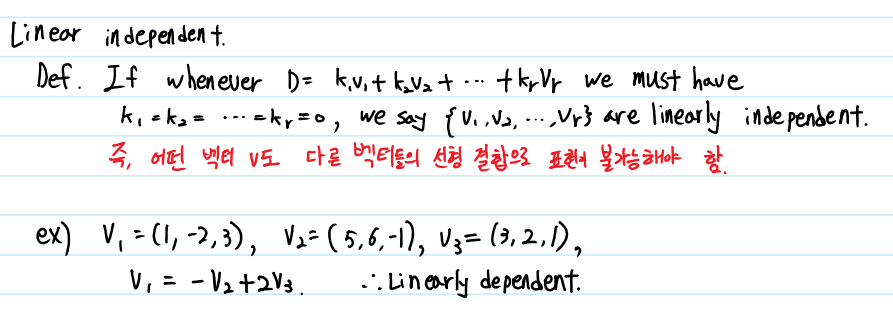 Linear independent.
Def. If whenever D= k₁v₁+k₂v₂+ ⋯ +kᵣVᵣ we must have
k₁=k₂= ⋯ =kᵣ=0, we say {v₁,v₂, ⋯,vᵣ} are linearly independent.
즉, 어떤 벡터 v도 다른 벡터들의 선형 결합으로 표현이 불가능해야 함.
ex) V₁=(1,-2,3), V₂=(5,6,-1), V₃=(3,2,1),
V₁ = -V₂+2V₃. ∴ Linearly dependent.